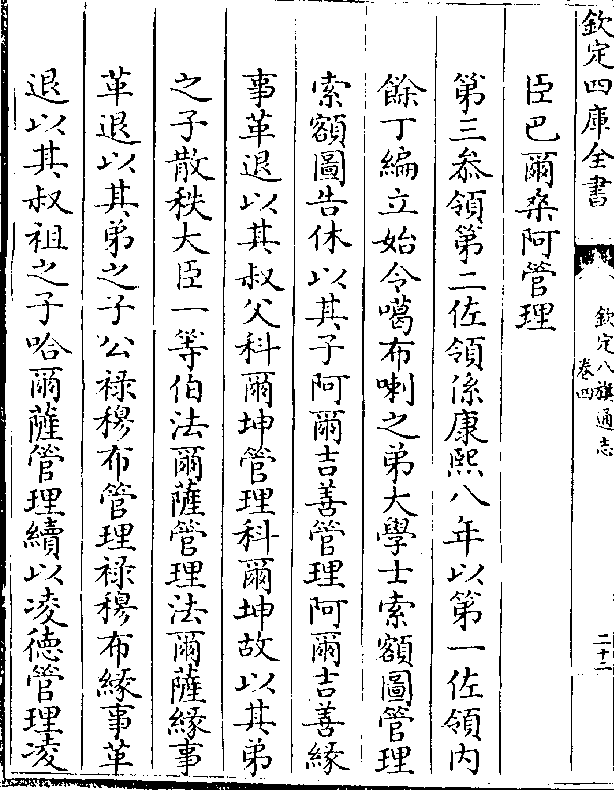 欽定四庫全書
欽定八旗通志
卷四
二十二
臣巴爾桑阿管理
第三叅領第二佐領係康熙八年以第一佐領内
餘丁編立始令噶布喇之弟大學士索額圖管理
索額圖告休以其子阿爾吉善管理阿爾吉善緣
事革退以其叔父科爾坤管理科爾坤故以其弟
之子散秩大臣一等伯法爾薩管理法爾薩緣事
革退以其弟之子公禄穆布管理禄穆布緣事革
退以其叔祖之子哈爾薩管理續以凌德管理凌